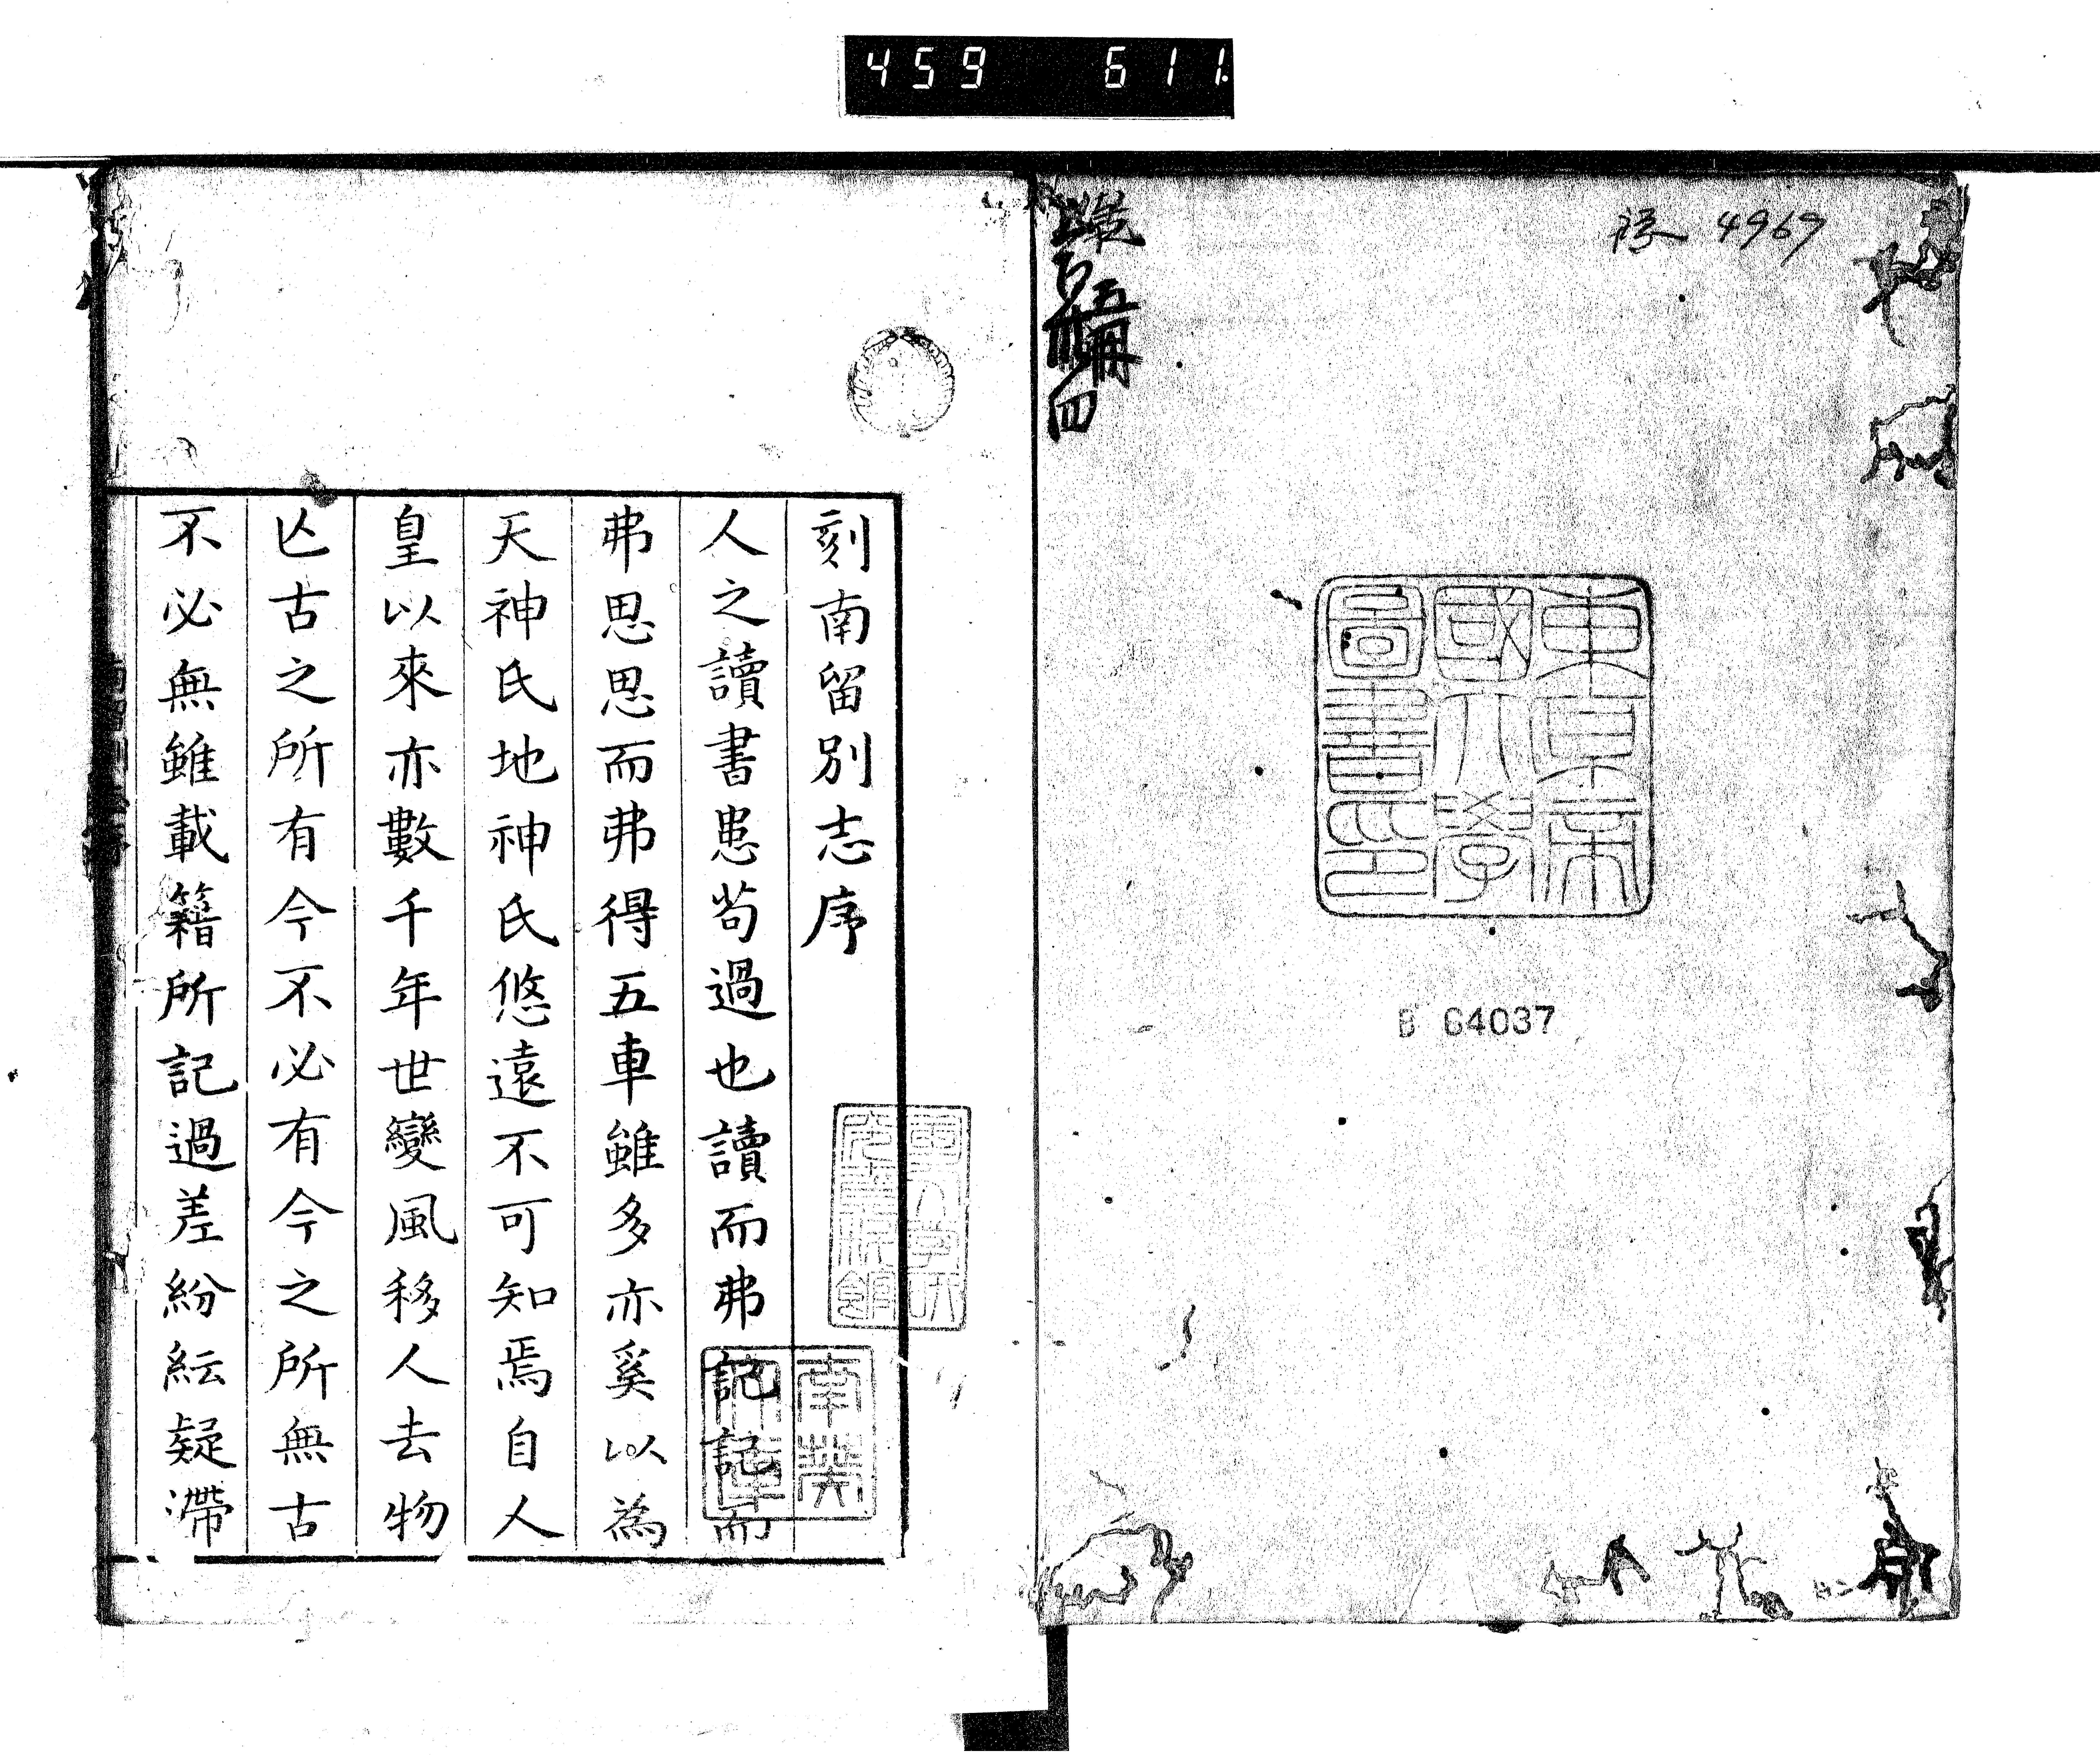 459 611.
4969
五冊
四
東京帝
國大學
圖書印
B 64037
刻南留別志序
人之讀書患苟過也讀而弗記記而
弗思思而弗得五車雖多亦奚以為
天神氏地神氏悠遠不可知焉自人
皇以來亦數千年世變風移人去物
亾古之所有今不必有今之所無古
不必無雖載籍所記過差紛紜疑滯
南葵
文庫